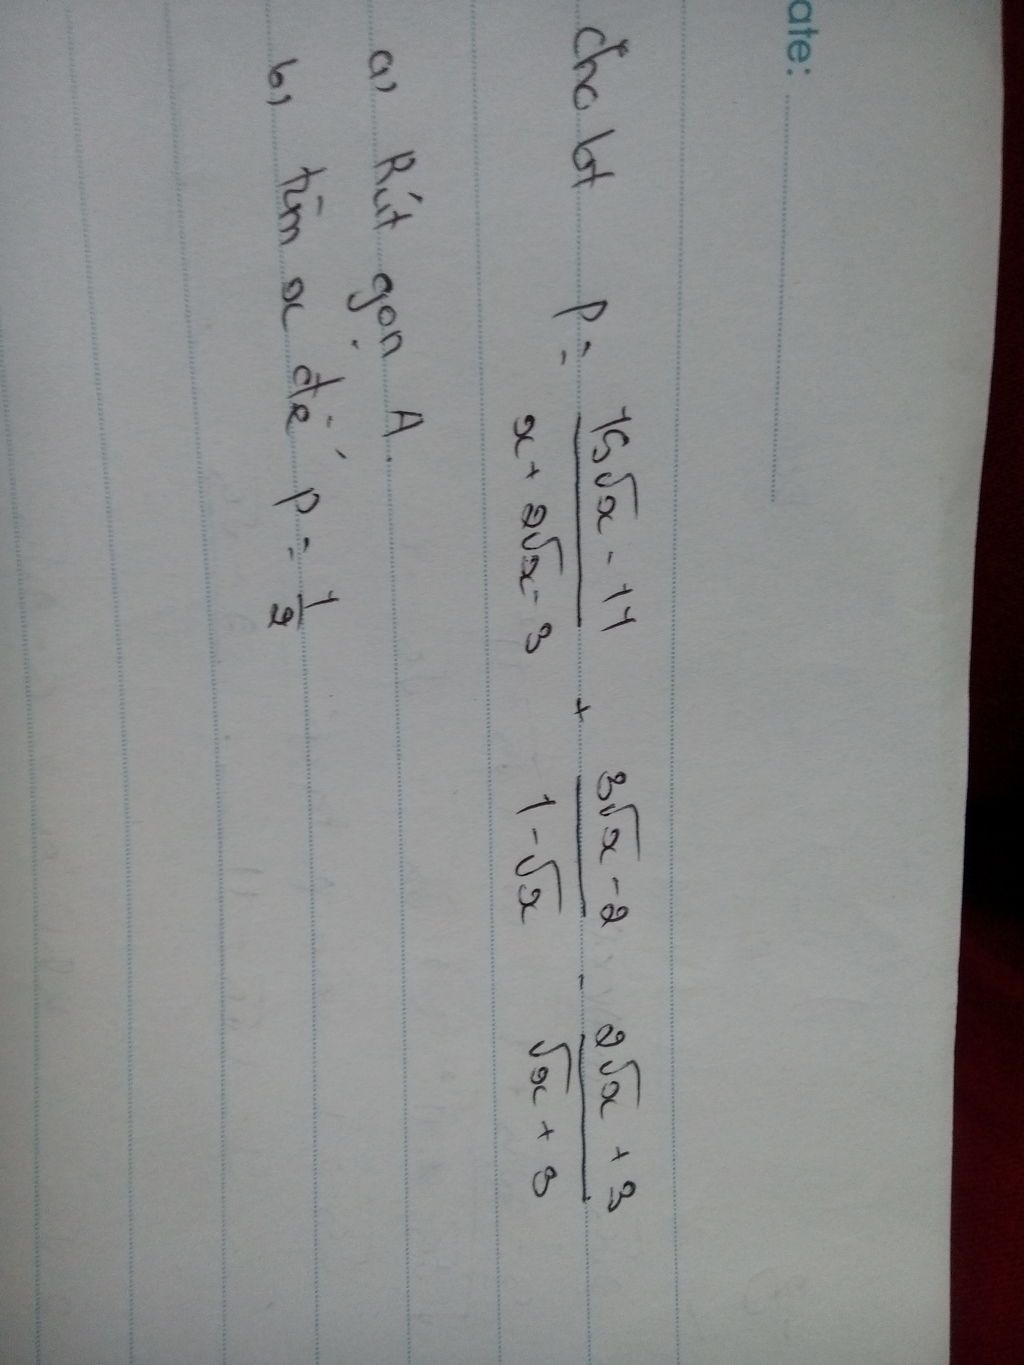 ate:
cho bt P = \frac{15\sqrt{x} - 11}{x + 2\sqrt{x} - 3} + \frac{3\sqrt{x} - 2}{1 - \sqrt{x}} - \frac{2\sqrt{x} + 3}{\sqrt{x} + 3}
a, Rút gọn A.
b, tìm x để P = \frac{1}{2}